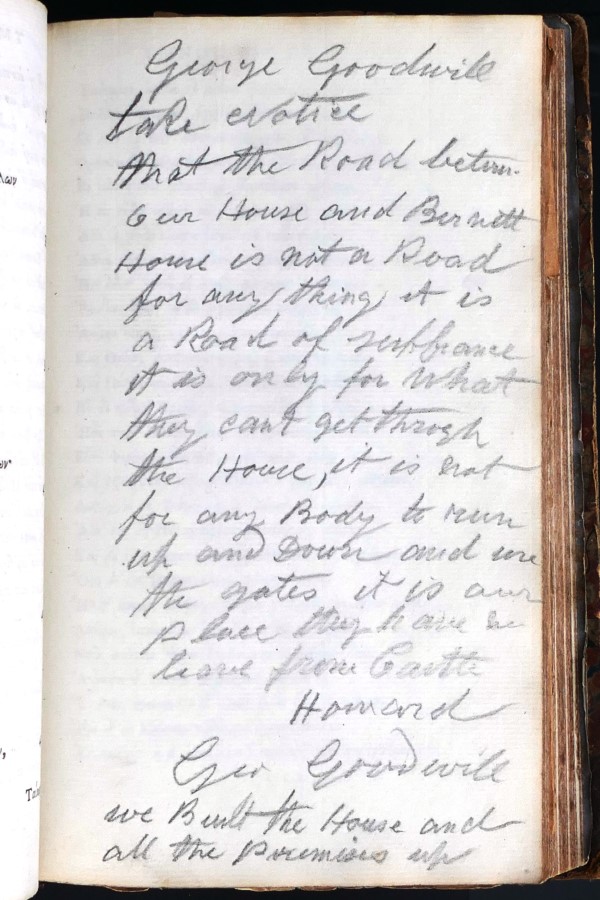 George Goodwill
take Notice
that the Road betwn.
our House and Burnett
House is not a Road
for any thing it is
a Road of suffrance
it is only for What
they cant get through
the House, it is not
for any Body to run
up and Down and use
the gates it is our
place they have no
leave from Castle
Howard
Geo Goodwill
we Built the House and
all the Premises up